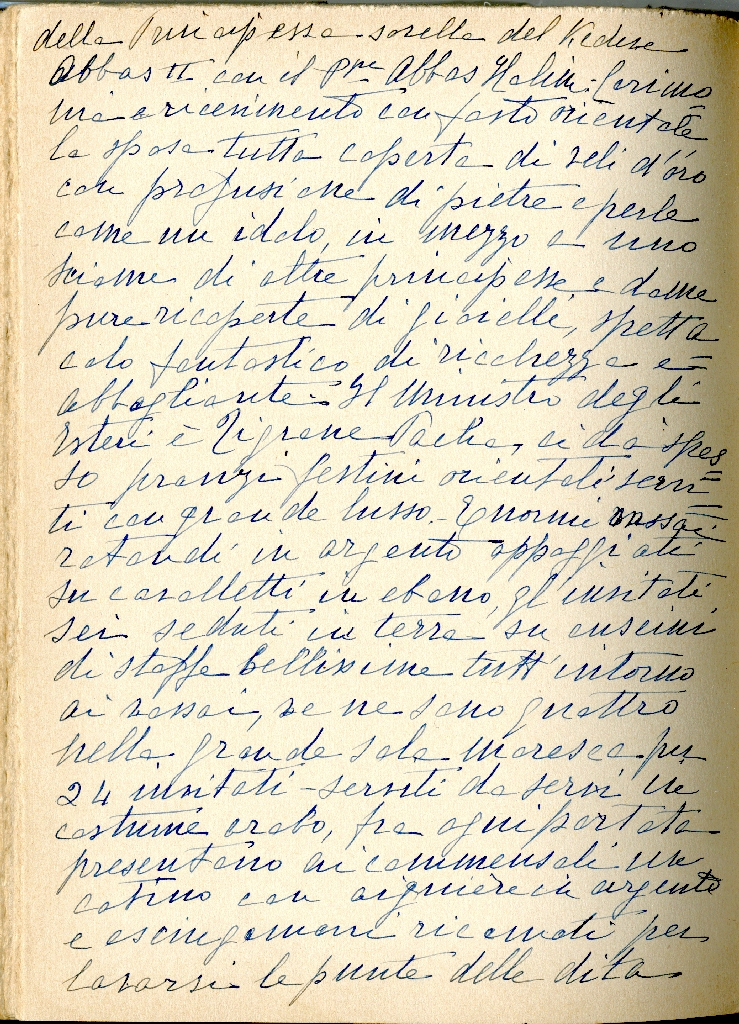 della Principessa sorella del Kedive
Abbas II con il Pre Abbas Halim: Cerimo=
nia e ricevimento con fasto orientale
la sposa tutta coperta di veli d'oro
con profusione di pietre e perle
come un idolo, in mezzo a uno
sciame di altre principesse e dame
pure ricoperte di gioielli, spetta
colo fantastico di ricchezza e=
abbagliante. Il Ministro degli
Esteri è Tigrane Pacha, ci dà spes
so pranzi festini orientali servi=
ti con grande lusso. Enormi vassoi
rotondi in argento appoggiati
su cavalletti in ebano, gl'invitati
sei seduti in terra su cuscini
di stoffe bellissime tutt'intorno
ai vassoi, ve ne sono quattro
nella grande sala moresca per
24 invitati - serviti da servi in
costume arabo, fra ogni portata
presentano ai commensali un
catino con aiguière in argento
e asciugamani ricamati per
lavarsi le punte delle dita